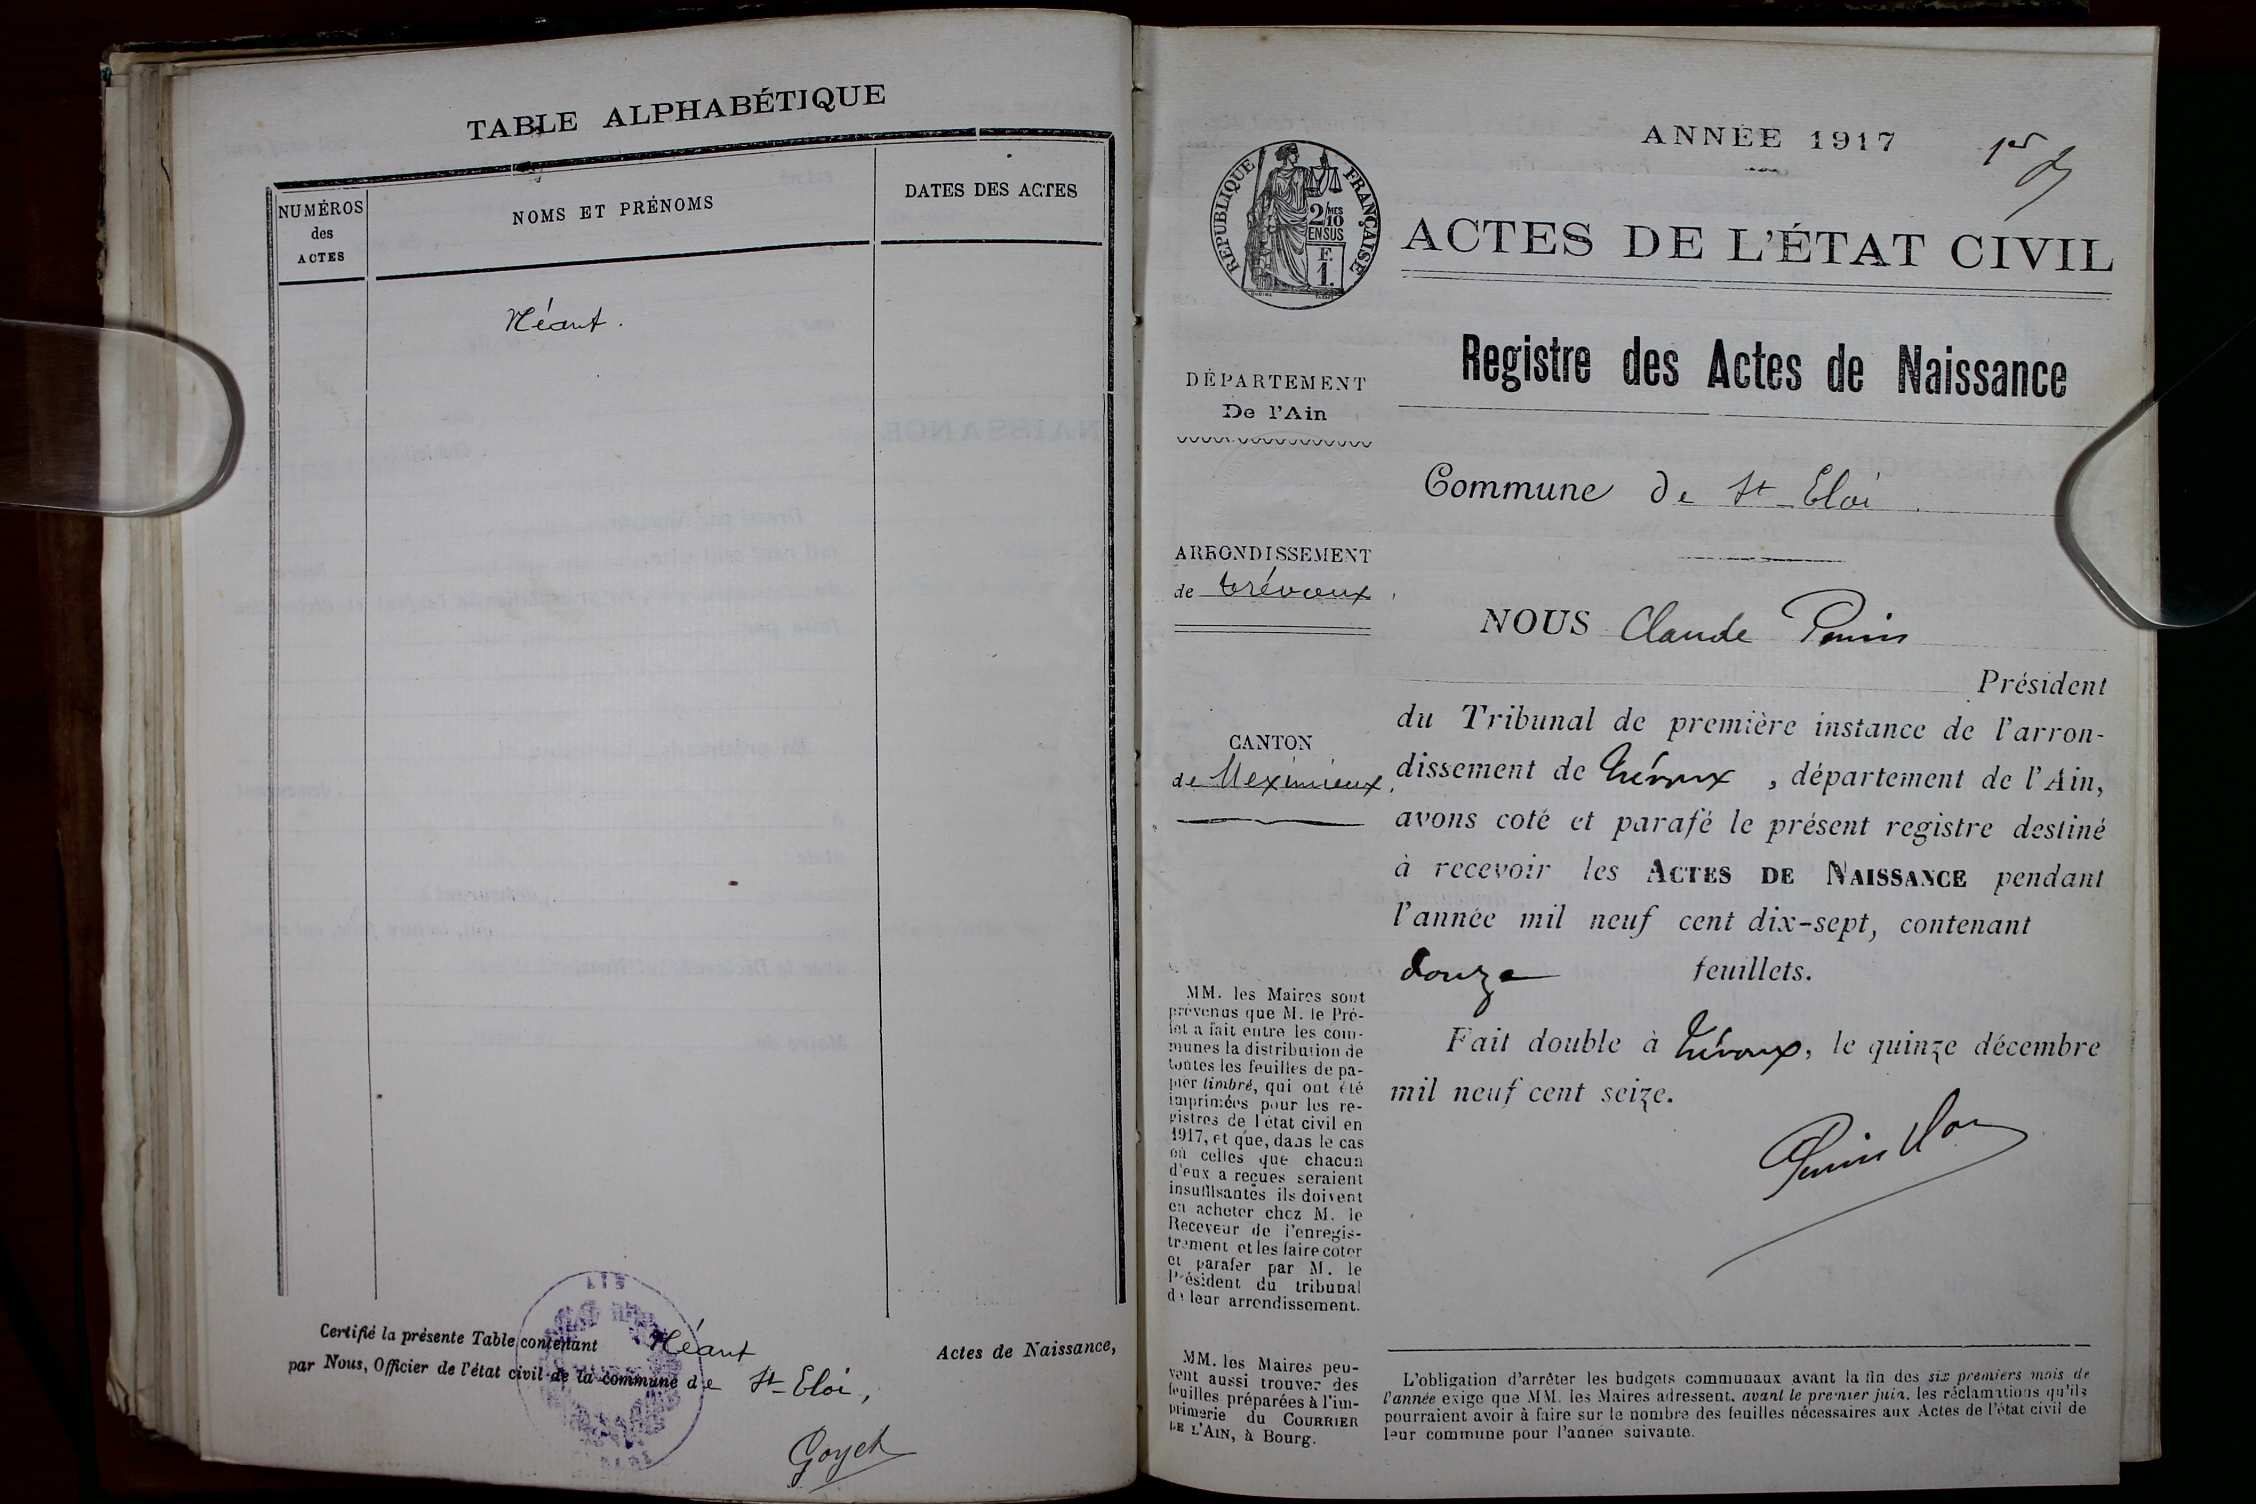 TABLE ALPHABÉTIQUE
NUMÉROS
des
ACTES
NOMS ET PRÉNOMS
DATES DES ACTES
Néant.
Certifié la présente Table contenant Néant Actes de Naissance,
par Nous, Officier de l'état civil de la commune de St-Eloi,
Goyet
ANNÉE 1917
1er
RÉPUBLIQUE FRANÇAISE
2/MES
10
EN SUS
F.
1.
ACTES DE L'ÉTAT CIVIL
Registre des Actes de Naissance
DÉPARTEMENT
De l'Ain
Commune de St-Eloi.
ARRONDISSEMENT
de Trévoux
NOUS Claude
Président
du Tribunal de première instance de l'arron-
dissement de Trévoux, département de l'Ain,
avons coté et parafé le présent registre destiné
à recevoir les ACTES DE NAISSANCE pendant
l'année mil neuf cent dix-sept, contenant
douze feuillets.
Fait double à Trévoux, le quinze décembre
mil neuf cent seize.
CANTON
de Meximieux,
MM. les Maires sont
prévenus que M. le Pré-
fet a fait entre les com-
munes la distribution de
toutes les feuilles de pa-
pier timbré, qui ont été
imprimées pour les re-
gistres de l'état civil en
1917, et que, dans le cas
où celles que chacun
d'eux a reçues seraient
insuffisantes ils doivent
en acheter chez M. le
Receveur de l'enregis-
trement et les faire coter
et parafer par M. le
Président du tribunal
de leur arrondissement.
MM. les Maires peu-
vent aussi trouver des
feuilles préparées à l'im-
primerie du COURRIER
DE L'AIN, à Bourg.
L'obligation d'arrêter les budgets communaux avant la fin des six premiers mois de
l'année exige que MM. les Maires adressent, avant le premier juin, les réclamations qu'ils
pourraient avoir à faire sur le nombre des feuilles nécessaires aux Actes de l'état civil de
leur commune pour l'année suivante.